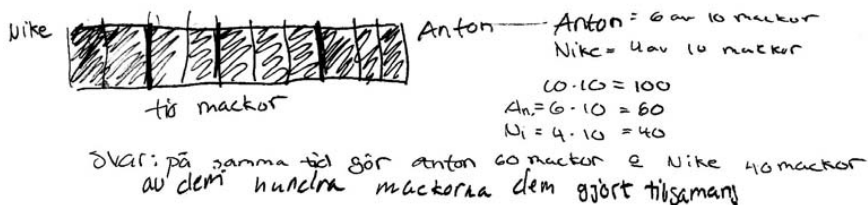 Nike
Anton
Anton = 6 av 10 mackor
Nike = 4 av 10 mackor
tio mackor
10·10 = 100
An.= 6·10 = 60
Ni = 4·10 = 40
Svar: på samma tid gör Anton 60 mackor & Nike 40 mackor
av dem hundra mackorna dem gjort tillsamans